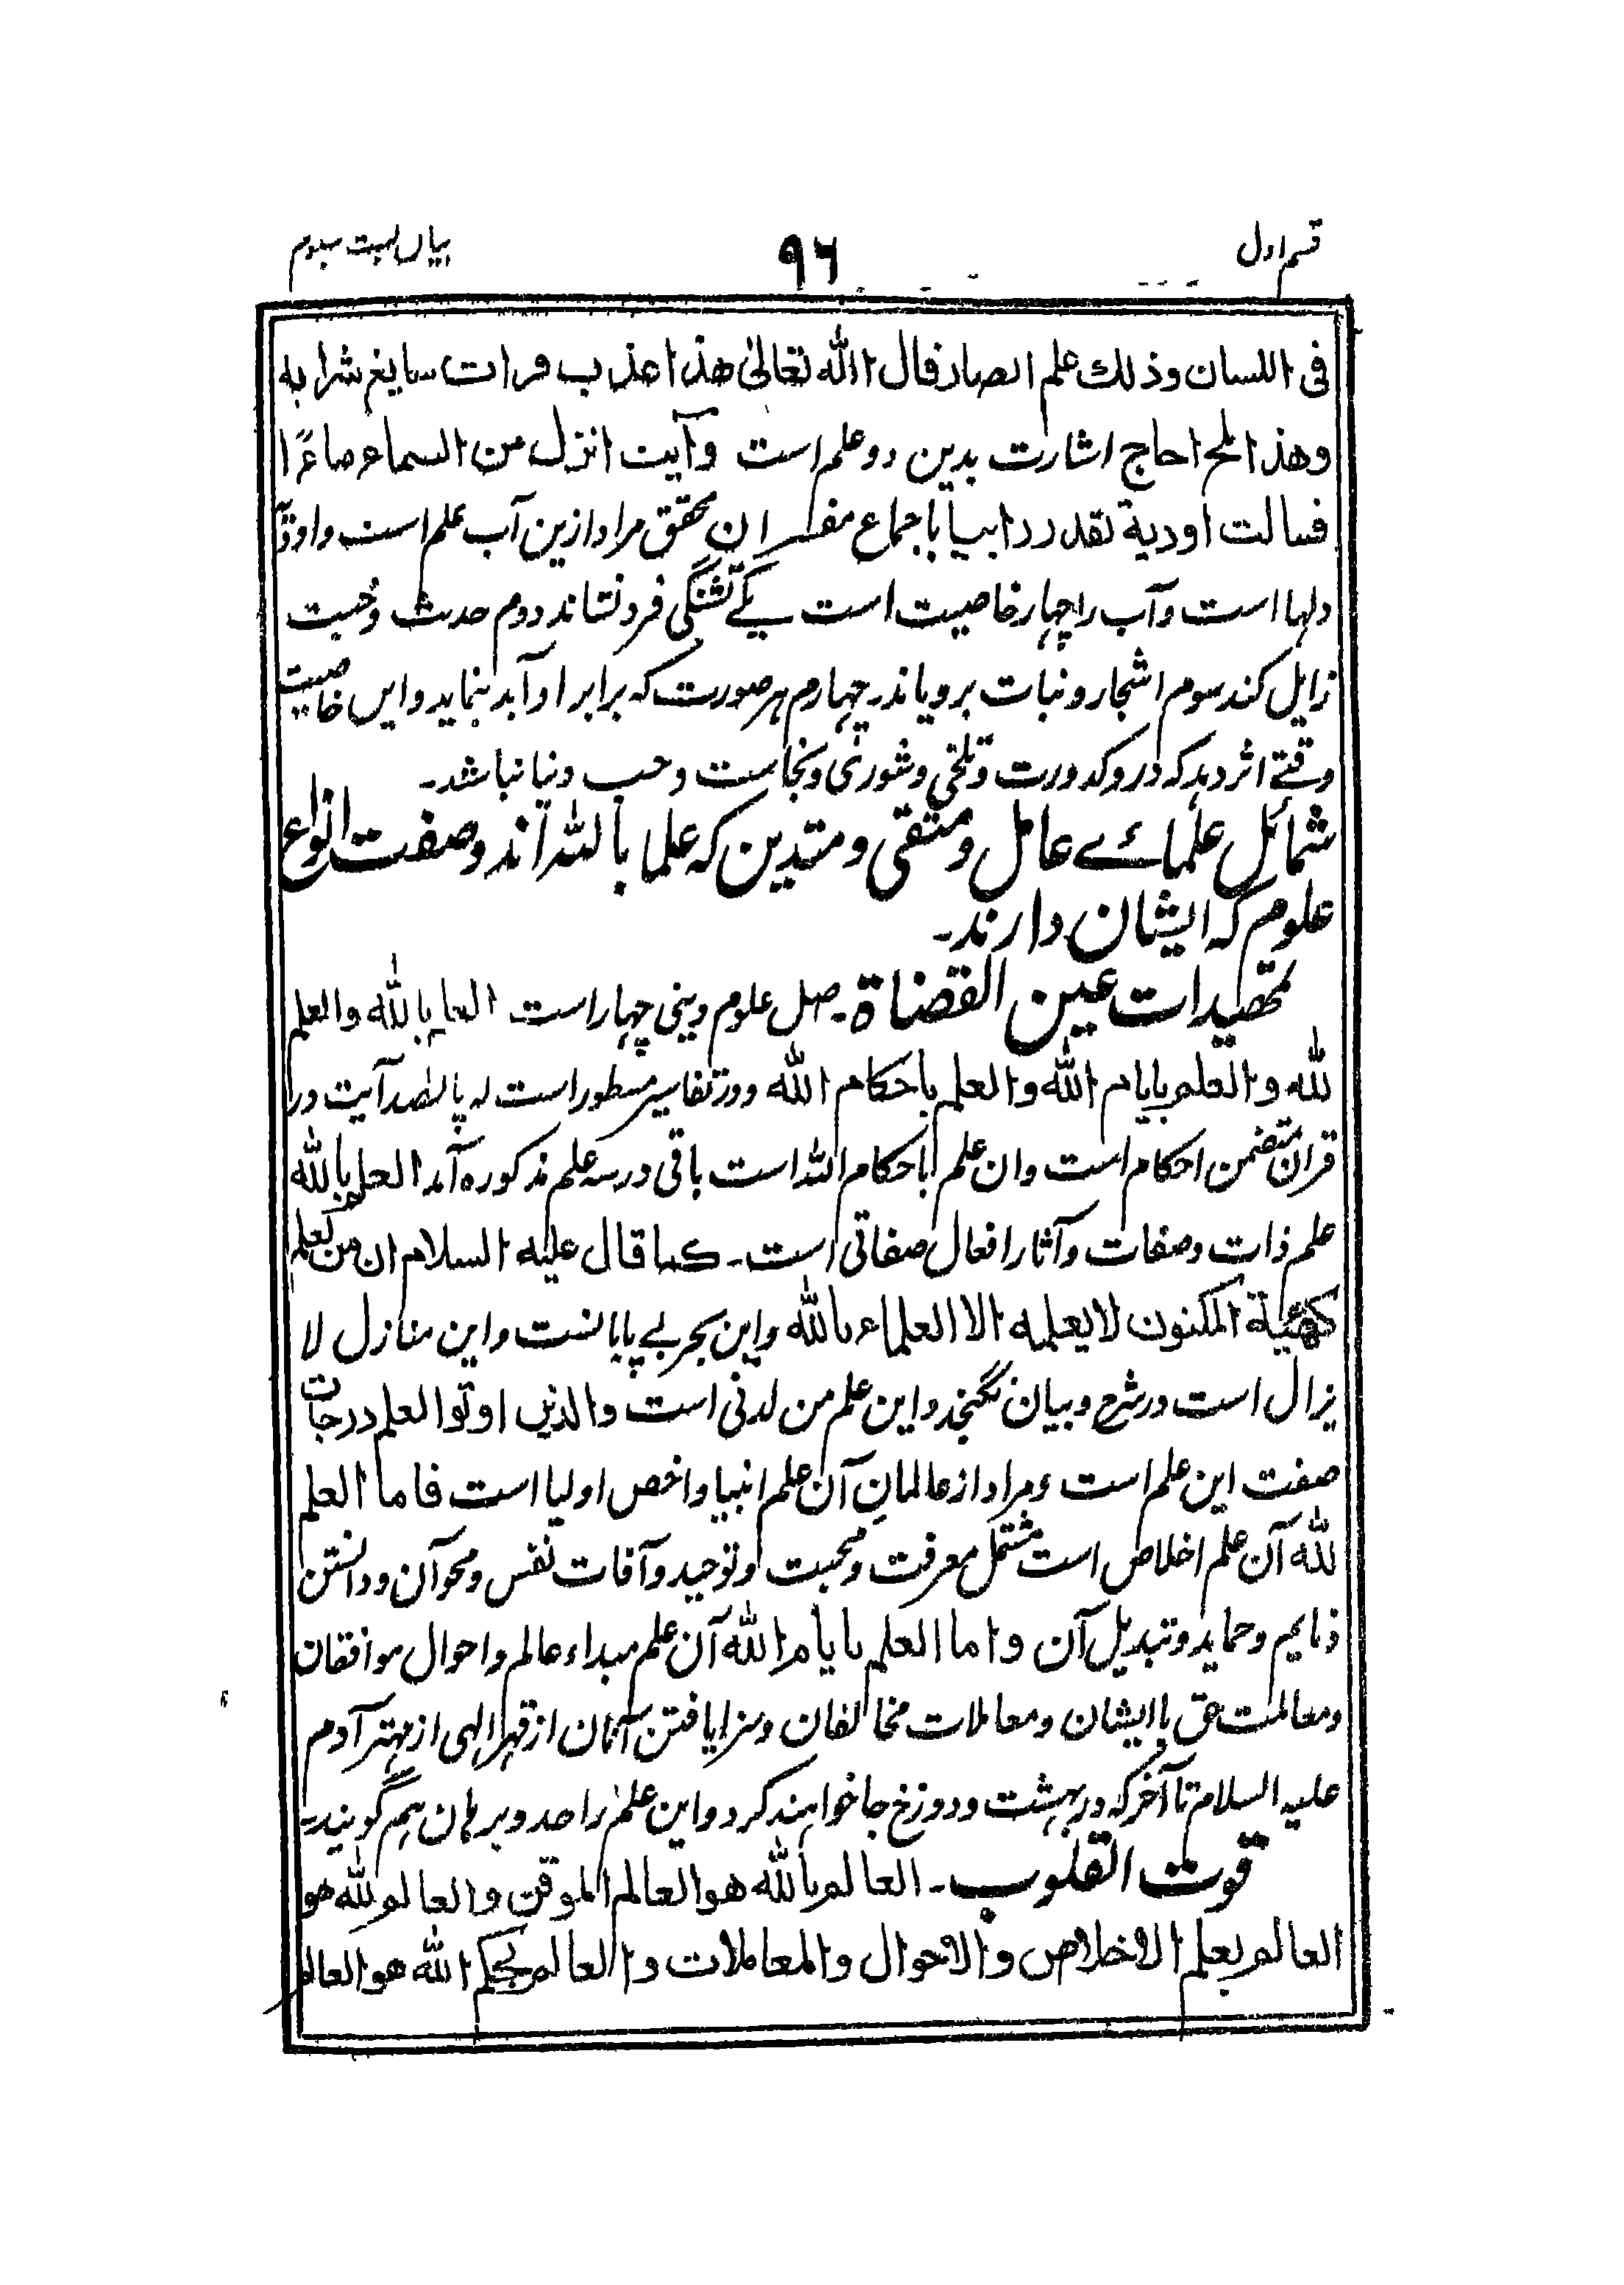 قسم اول ۹۶ بیان بیست سوم
فی اللسان وذلك علم الضار قال الله تعالیٰ هذا عذب فرات سایغ شرابه
وهذا ملح اجاج اشارت بدین دو علم است وآیت انزل من السماء ماءً ا
فسالت اودیة بقدرها اینجا باجماع مفسران محقق مراد ازین آب علم است واودیه
دلها است وآب را چهار خاصیت است یکے تشنگی فرو نشاند دوم حدث وخبث
زایل کند سوم اشجار و نبات برویاند چهارم هر صورت که برابر او آید بنماید وایں خاصیت
وقتے اثر دهد که درو کدورت وتلخی وشوری ونجاست وحب دنیا نباشد۔
شمائل علمائے عامل ومتقی ومتدین که علما باللہ اند وصفت انواع
علوم که ایشان دارند۔
تمهیدات عین القضاة۔ اصل علوم دینی چهار است العلم بالله والعلم
لله والعلم بایام الله والعلم باحکام الله ودر تفاسیر مسطور است که پانصد آیت در
قران متضمن احکام است وان علم باحکام اللہ است باقی در سه علم مذکوره آمد العلم بالله
علم ذات وصفات وآثار افعال صفاتی است۔ کما قال علیه السلام ان من العلم
کهیئة المکنون لا یعلمه الا العلماء بالله واین بحر بے پایانست واین منازل لا
یزال است در شرح وبیان نگنجد واین علم من لدنی است والذین اوتوا العلم درجات
صفت این علم است ومراد از عالمان آن علم انبیا واخص اولیا است فاما العلم
لله آن علم اخلاص است مشتمل معرفت ومحبت وتوحید وآفات نفس ومحو آن ودانستن
ذمایم وحماید وتبدیل آن واما العلم بایام الله آن علم مبداء عالم واحوال موافقان
ومعاملت حق با ایشان ومعاملات مخالفان وسزا یافتن آنان از قهر الهی از مهتر آدم
علیه السلام تا آخر که در بهشت ودوزخ جا خواهند کرد واین علم را حد وبرهان هم گویند۔
قوت القلوب۔ العالم بالله هو العالم الموقن والعالم لله هو
العالم بعلم الاخلاص والاحوال والمعاملات والعالم بحکم الله هو العالم